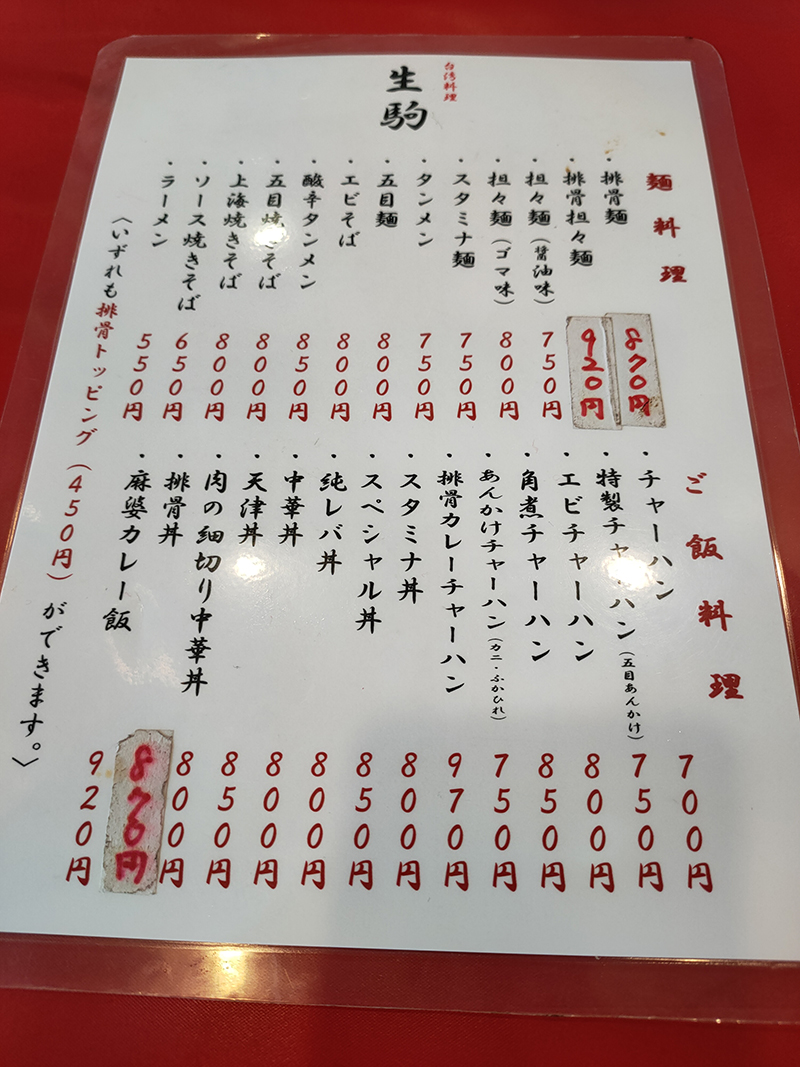 台湾料理
生駒
麺料理
・排骨麺 870円
・排骨担々麺 920円
・担々麺(醤油味) 750円
・担々麺(ゴマ味) 800円
・スタミナ麺 750円
・タンメン 750円
・五目麺 800円
・エビそば 800円
・酸辛タンメン 850円
・五目焼きそば 800円
・上海焼きそば 800円
・ソース焼きそば 650円
・ラーメン 550円
〈いずれも排骨トッピング(450円)ができます。〉
ご飯料理
・チャーハン 700円
・特製チャーハン(五目あんかけ) 750円
・エビチャーハン 800円
・角煮チャーハン 850円
・あんかけチャーハン(カニ・ふかひれ) 750円
・排骨カレーチャーハン 970円
・スタミナ丼 800円
・スペシャル丼 850円
・純レバ丼 800円
・中華丼 800円
・天津丼 850円
・肉の細切り中華丼 800円
・排骨丼 870円
・麻婆カレー飯 920円